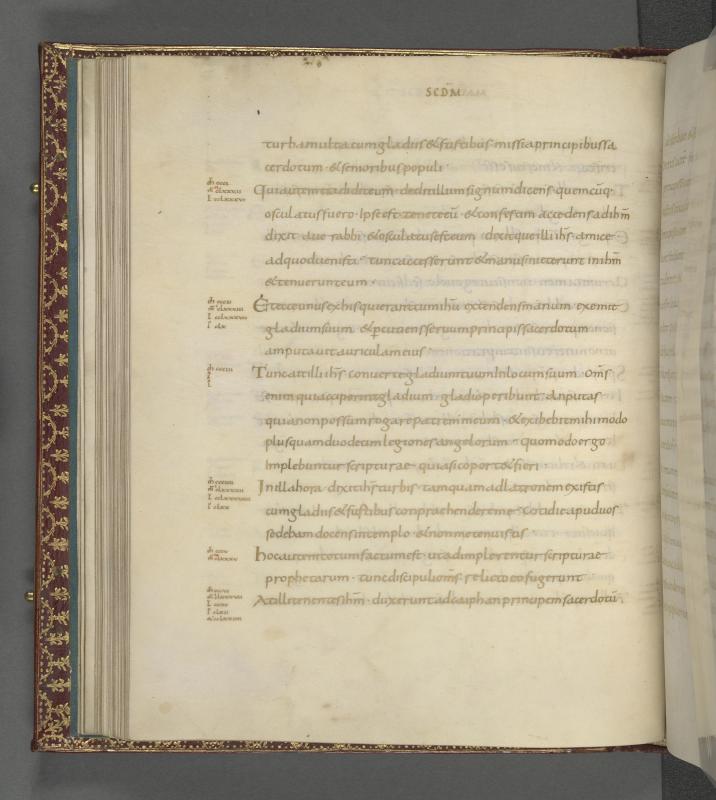 SCDM̄
turba multa cum gladiis & fustibus · missi a principibus sa
cerdotum · & senioribus populi ·
Qui autem tradidit eum · dedit illum signum dicens · quemcūq·
osculatus fuero · Ipse est tenete eū · & confestim accedens ad ihm̄
dixit aue rabbi · & osculatus est eum · dixitque illi ihs̄ · amice
ad quod uenisti · tunc accesserunt & manus iniecerunt in ihm̄
& tenuerunt eum ·
Et ecce unus ex his qui erant cum ihū · extendens manum exemit
gladium suum · & ꝑcutiens seruum principis sacerdotum
amputauit auriculam eius ·
Tunc ait illi ihs̄ · conuerte gladium tuum In locum suum · Om̄s
enim qui acciperint gladium · gladio peribunt · An putas
quia non possum rogare patrem meum · & exibebit mihi modo
plusquam duodecim legiones angelorum · quomodo ergo
Implebuntur scripturae · quia sic oport& fieri ·
In illa hora · dixit ihs̄ turbis · tamquam ad latronem existis
cum gladiis & fustibus conprahendere me · Cotidie apud uos
sedebam docens in templo · & non me tenuistis
hoc autem totum factum est · ut adimplerentur scripturae
prophetarum · tunc discipuli om̄s · relicto eo fugerunt
At illi tenentes ihm̄ · duxerunt ad caiphan principem sacerdotū ·